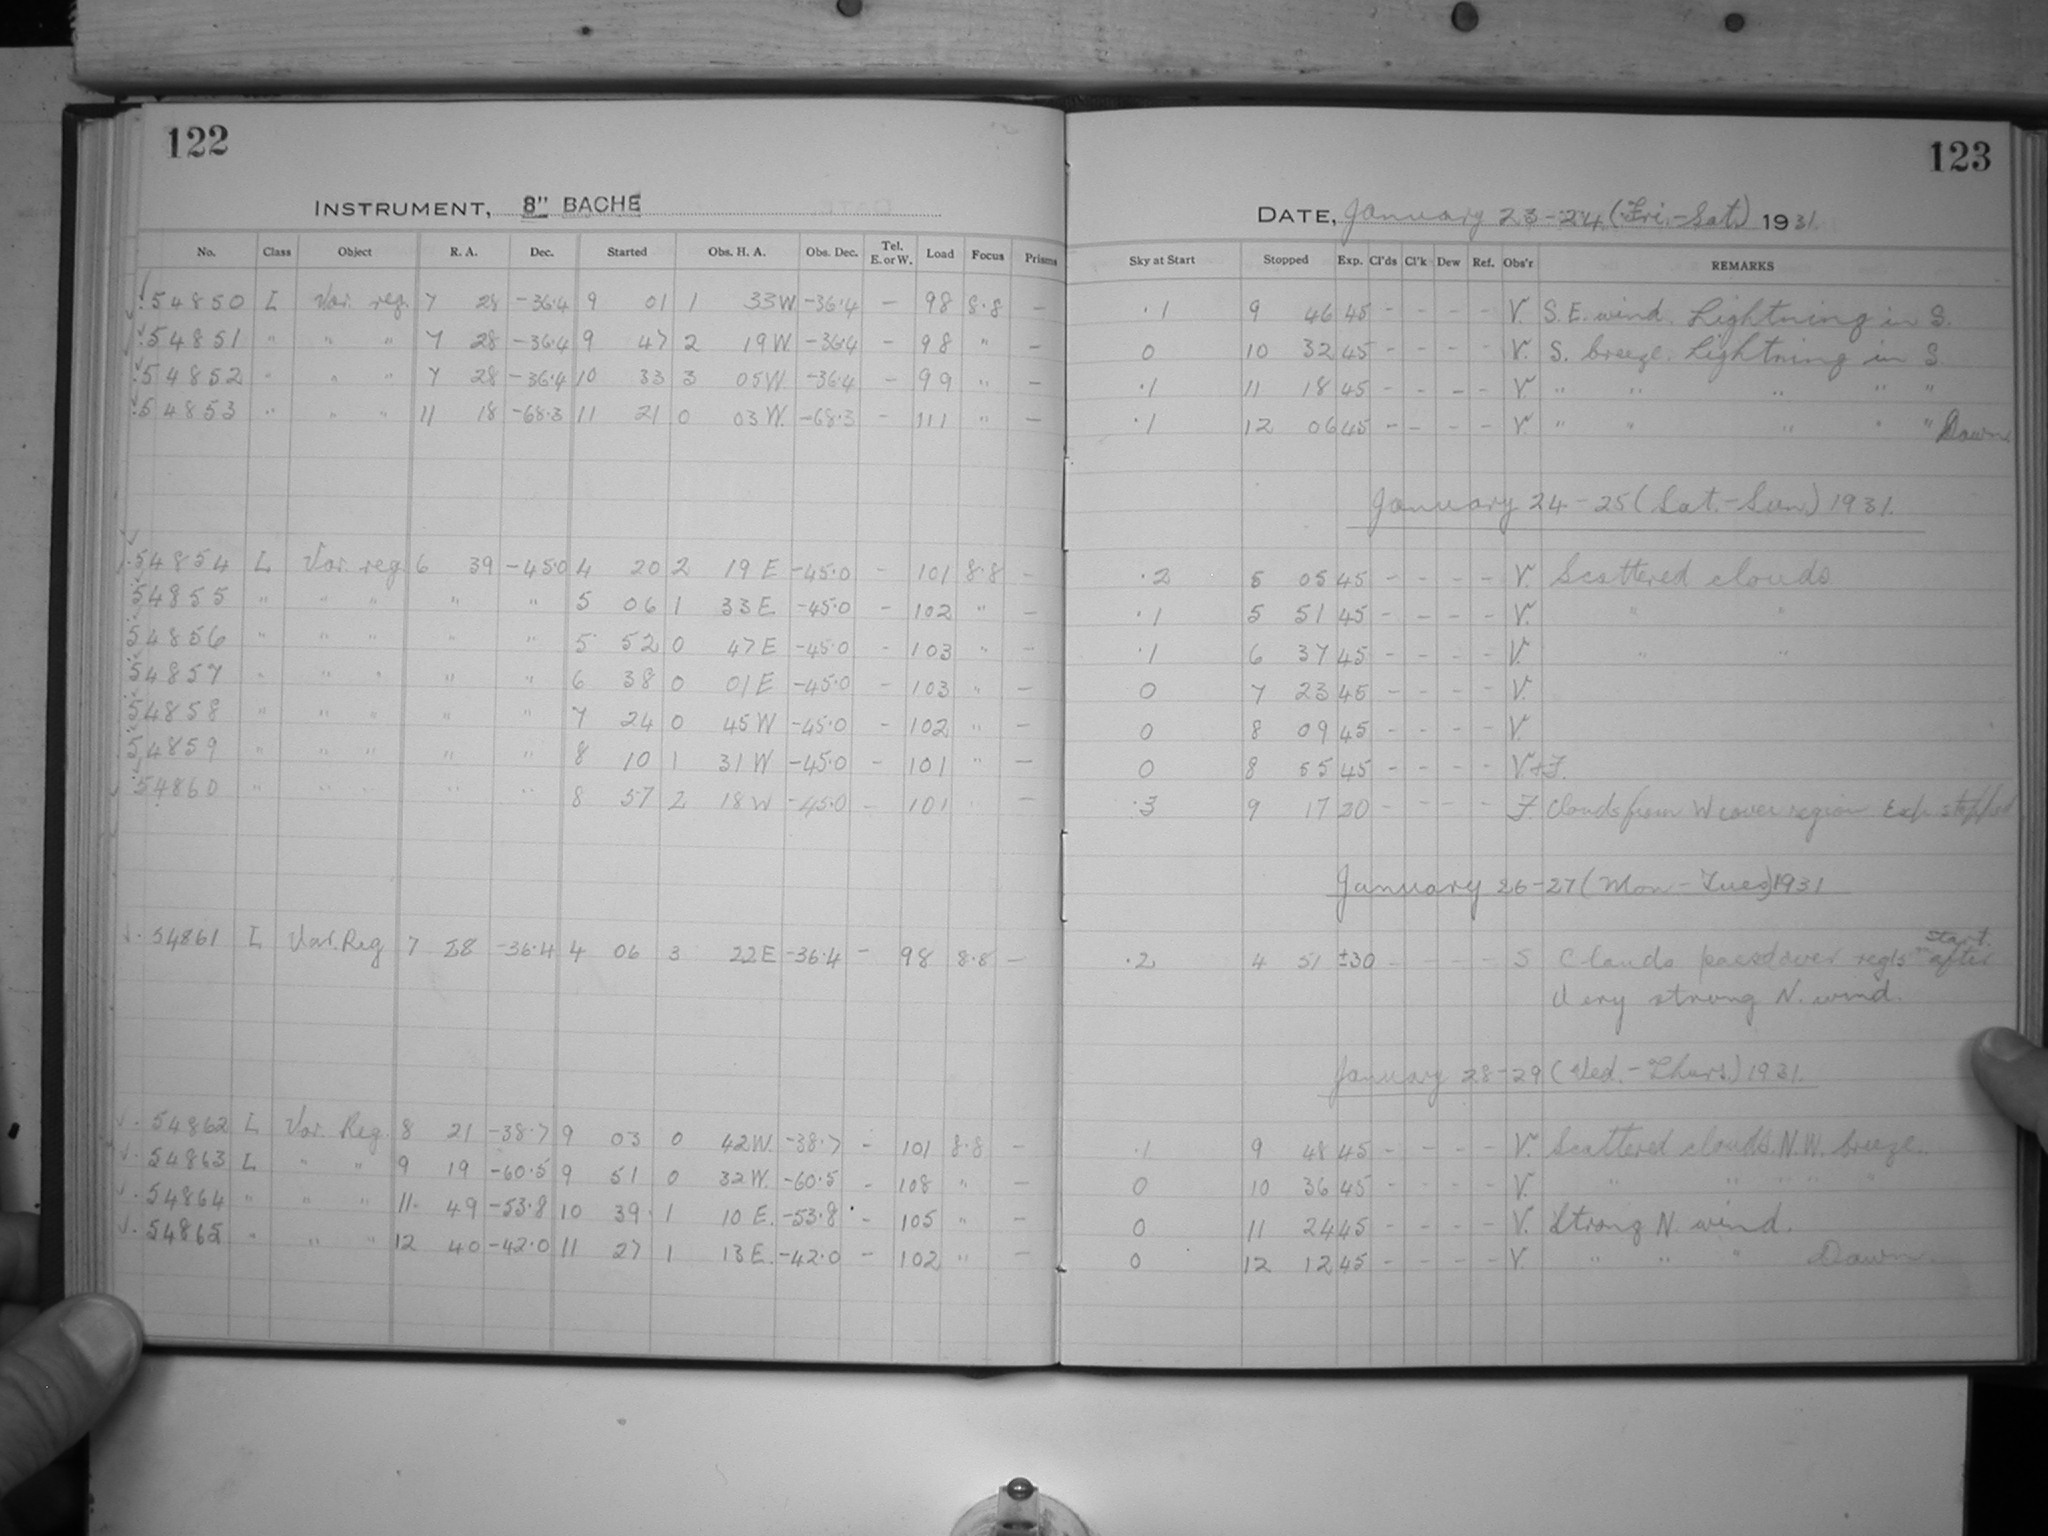 122
INSTRUMENT, 8" BACHE
No. Class Object R. A. Dec. Started Obs. H. A. Obs. Dec. Tel. E. or W. Load Focus Prisms
54850 L Var. reg. 7 28 -36.4 9 01 1 33 W -36.4 - 98 8.8 -
54851 " " " 7 28 -36.4 9 47 2 19 W -36.4 - 98 " -
54852 " " " 7 28 -36.4 10 33 3 05 W. -36.4 - 99 " -
54853 " " " 11 18 -68.3 11 21 0 03 W. -68.3 - 111 " -
54854 L Var. reg 6 39 -45.0 4 20 2 19 E -45.0 - 101 8.8 -
54855 " " " " " 5 06 1 33 E. -45.0 - 102 " -
54856 " " " " " 5 52 0 47 E -45.0 - 103 " -
54857 " " " " " 6 38 0 01 E -45.0 - 103 " -
54858 " " " " " 7 24 0 45 W -45.0 - 102 " -
54859 " " " " " 8 10 1 31 W -45.0 - 101 " -
54860 " " " " " 8 57 2 18 W -45.0 - 101 " -
54861 L Var. Reg 7 28 -36.4 4 06 3 22 E -36.4 - 98 8.8 -
54862 L Var. Reg. 8 21 -38.7 9 03 0 42 W. -38.7 - 101 8.8 -
54863 L " " 9 19 -60.5 9 51 0 32 W. -60.5 - 108 " -
54864 " " " 11. 49 -53.8 10 39 1 10 E. -53.8 - 105 " -
54865 " " " 12 40 -42.0 11 27 1 13 E. -42.0 - 102 " -
123
DATE, January 23-24 (Fri.-Sat.) 1931.
Sky at Start Stopped Exp. Cl'ds Cl'k Dew Ref. Obs'r REMARKS
.1 9 46 45 - - - - V. S. E. wind. Lightning in S.
0 10 32 45 - - - - V. S. breeze. Lightning in S.
.1 11 18 45 - - - - V. " " " " "
.1 12 06 45 - - - - V. " " " " " Dawn.
January 24-25 (Sat.-Sun.) 1931.
.2 5 05 45 - - - - V. Scattered clouds
.1 5 51 45 - - - - V. " "
.1 6 37 45 - - - - V. " "
0 7 23 45 - - - - V.
0 8 09 45 - - - - V.
0 8 55 45 - - - - V+F.
.3 9 17 20 - - - - F. Clouds from W cover region Exp. stopped
January 26-27 (Mon-Tues) 1931
.2 4 51 ±30 - - - - S Clouds passed over after start.
Very strong N. wind.
January 28-29 (Wed.-Thurs.) 1931.
.1 9 48 45 - - - - V. Scattered clouds. N.W. breeze.
0 10 36 45 - - - - V. " " " " "
0 11 24 45 - - - - V. Strong N. wind.
0 12 12 45 - - - - V. " " " Dawn.